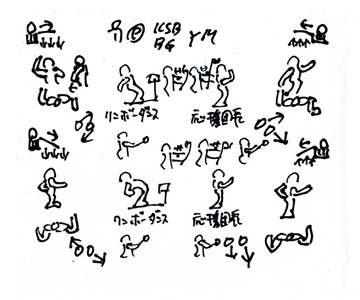 KSB
BG YM
リンボーダンス 応援団長
リンボーダンス 応援団長